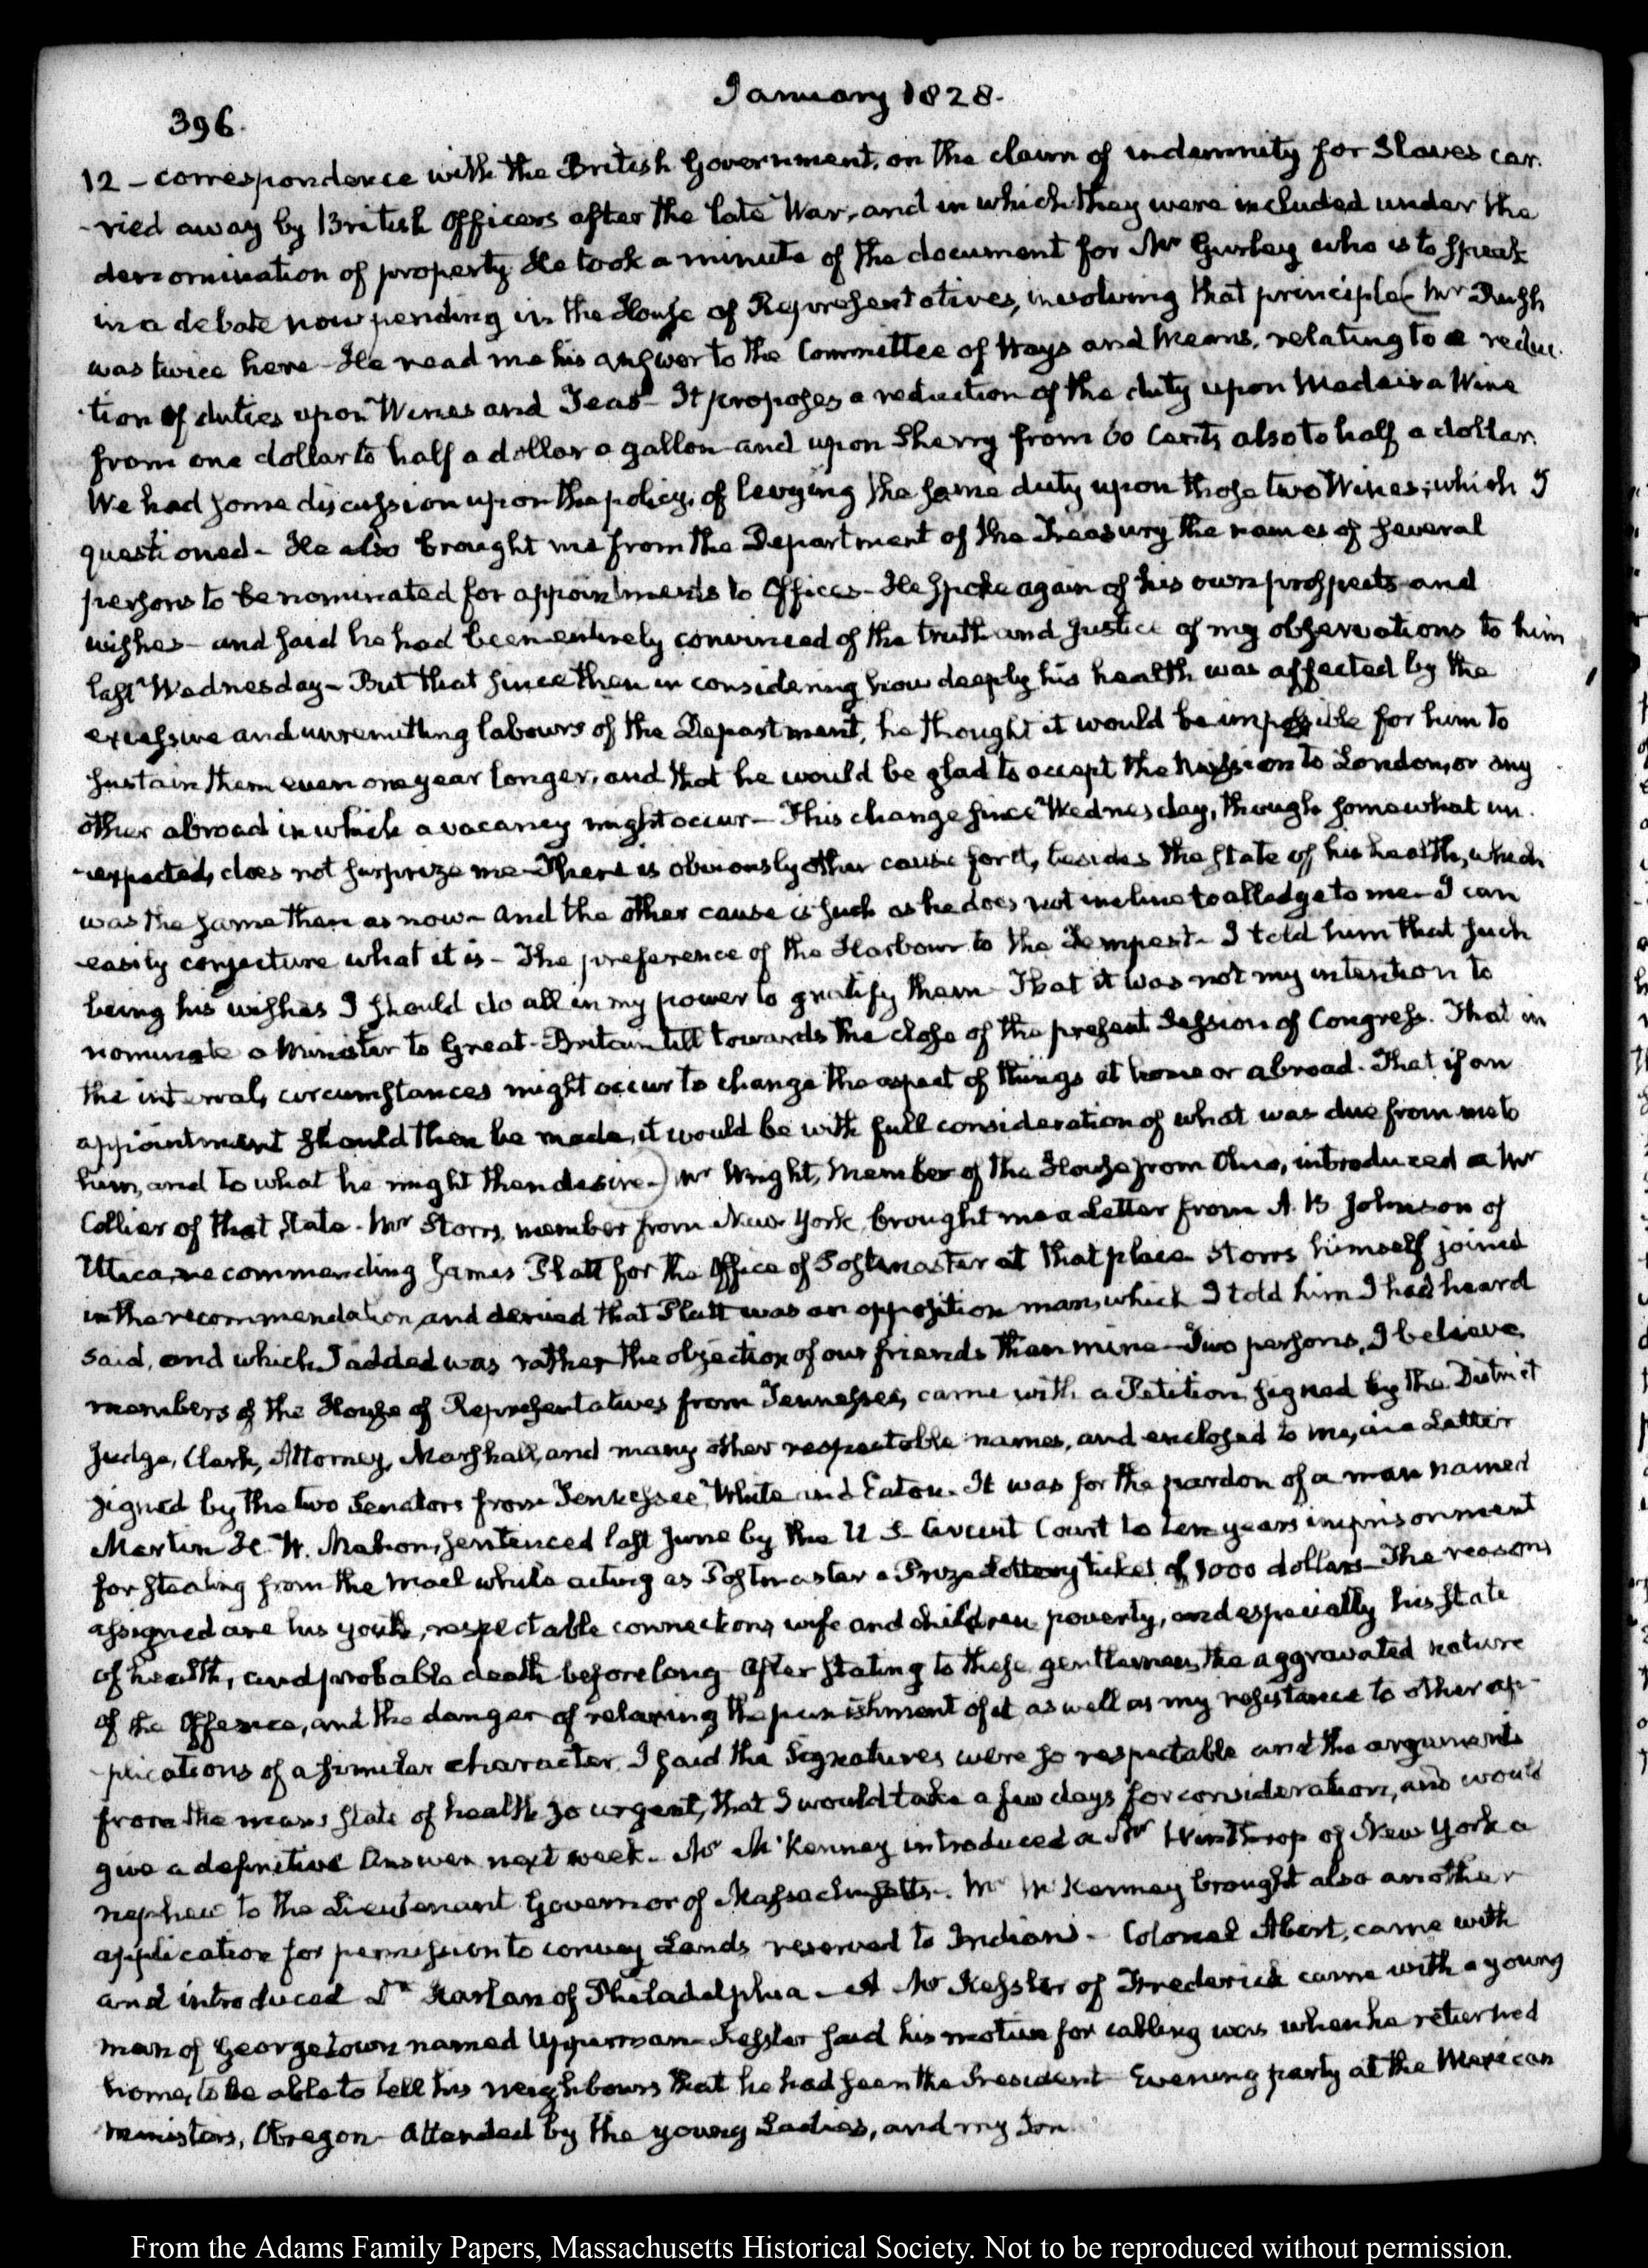 January 1828.
396.
12 - correspondence with the British Government, on the claim of indemnity for Slaves car-
-ried away by British Officers after the late War, and in which they were included under the
denomination of property. He took a minute of the document for Mr Gurley who is to speak
in a debate now pending in the House of Representatives, involving that principle (Mr Rush
was twice here - He read me his answer to the Committee of Ways and Means, relating to a reduc-
-tion of duties upon Wines and Teas - It proposes a reduction of the duty upon Madeira Wine
from one dollar to half a dollar a gallon and upon Sherry from 60 Cents also to half a dollar.
We had some discussion upon the policy of levying the same duty upon those two Wines; which I
questioned - He also brought me from the Department of the Treasury the names of several
persons to be nominated for appointments to Offices - He spoke again of his own prospects and
wishes - and said he had been entirely convinced of the truth and justice of my observations to him
last Wednesday - But that since then in considering how deeply his health was affected by the
excessive and unremitting labours of the Department, he thought it would be impossible for him to
sustain them even one year longer, and that he would be glad to accept the Mission to London, or any
other abroad in which a vacancy might occur - This change since Wednesday, though somewhat un-
-expected, does not surprize me - There is obviously other cause for it, besides the state of his health, which
was the same then as now - and the other cause is such as he does not incline to alledge to me - I can
easily conjecture what it is - The preference of the Harbour to the Tempest - I told him that such
being his wishes I should do all in my power to gratify them - That it was not my intention to
nominate a Minister to Great-Britain till towards the close of the present Session of Congress. That in
the interval, circumstances might occur to change the aspect of things at home or abroad. That if an
appointment should then be made, it would be with full consideration of what was due from me to
him, and to what he might then desire -) Mr Wright, Member of the House from Ohio, introduced a Mr
Collier of that State - Mr Storrs, member from New York, brought me a Letter from A. B. Johnson of
Utica, recommending James Platt for the Office of Postmaster at that place - Storrs himself joined
in the recommendation, and denied that Platt was an opposition man, which I told him I had heard
said, and which I added was rather the objection of our friends than mine - Two persons, I believe,
members of the House of Representatives from Tennessee, came with a Petition signed by the District
Judge, Clerk, Attorney, Marshall, and many other respectable names, and enclosed to me, in a Letter
signed by the two Senators from Tennessee, White and Eaton. It was for the pardon of a man named
Martin H. W. Mahon, sentenced last June by the U S. Circuit Court to ten years imprisonment
for stealing from the mail while acting as Postmaster a Prize Lottery ticket of 5000 dollars - The reasons
assigned are his youth, respectable connections, wife and children, poverty, and especially his state
of health, and probable death before long - After stating to these gentlemen, the aggravated nature
of the Offence, and the danger of relaxing the punishment of it as well as my resistance to other ap-
-plications of a similar character, I said the Signatures were so respectable and the arguments
from the man's state of health so urgent, that I would take a few days for consideration, and would
give a definitive Answer next week - Mr McKenney introduced a Mr Winthrop of New York a
nephew to the Lieutenant Governor of Massachusetts - Mr McKenney brought also another
application for permission to convey Lands reserved to Indians - Colonel Abert, came with
and introduced Dr Harlan of Philadelphia - A Mr Kessler of Frederick came with a young
man of Georgetown named Upperman - Kessler said his motive for calling was when he returned
home, to be able to tell his neighbours that he had seen the President - Evening party at the Mexican
Ministers, Obregon - Attended by the young Ladies, and my Son.
From the Adams Family Papers, Massachusetts Historical Society. Not to be reproduced without permission.